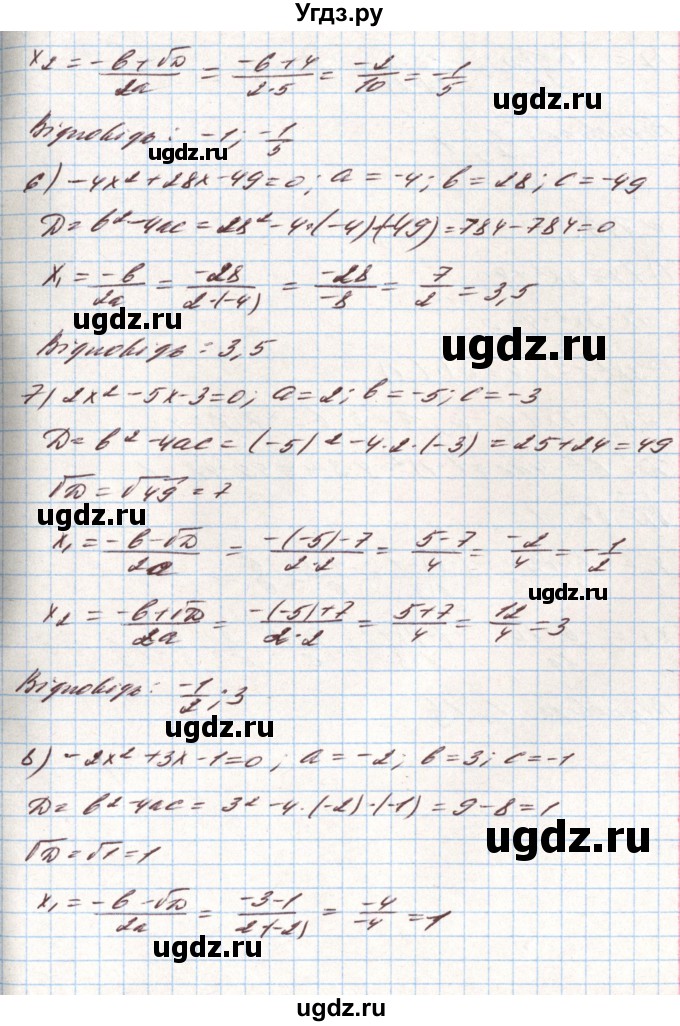 Угдз.ру
x₂ = (-b+√D)/2a = (-6+4)/(2·5) = -2/10 = -1/5
ugdz.ru
Відповідь: -1; -1/5
ugdz.ru
6) -4x²+28x-49=0; a=-4; b=28; c=-49
D=b²-4ac=28²-4·(-4)(-49)=784-784=0
x₁ = -b/2a = -28/(2·(-4)) = -28/-8 = 7/2 = 3,5
ugdz.ru
ugdz.ru
Відповідь: 3,5
7) 2x²-5x-3=0; a=2; b=-5; c=-3
D=b²-4ac=(-5)²-4·2·(-3)=25+24=49
√D=√49=7
ugdz.ru
x₁ = (-b-√D)/2a = (-(-5)-7)/(2·2) = (5-7)/4 = -2/4 = -1/2
ugdz.ru
x₂ = (-b+√D)/2a = (-(-5)+7)/(2·2) = (5+7)/4 = 12/4 = 3
Відповідь: -1/2; 3
ugdz.ru
8) -2x²+3x-1=0; a=-2; b=3; c=-1
D=b²-4ac=3²-4·(-2)·(-1)=9-8=1
ugdz.ru
√D=√1=1
x₁ = (-b-√D)/2a = (-3-1)/(2·(-2)) = -4/-4 = 1
ugdz.ru
ugdz.ru